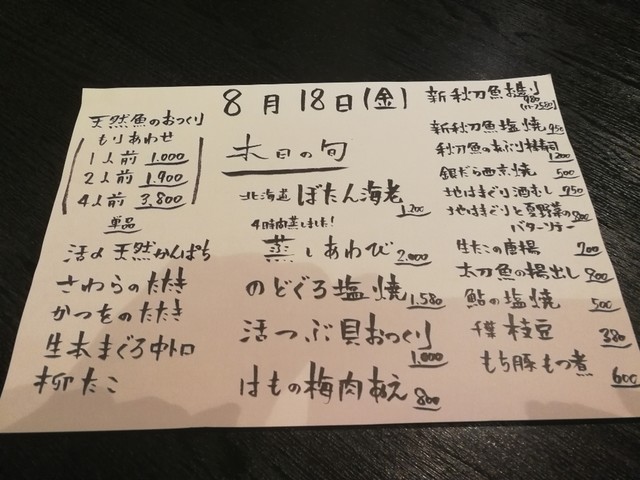 8月18日(金)
天然魚のおつくり
もりあわせ
1人前 1.000
2人前 1.900
4人前 3,800
単品
活〆天然かんぱち
さわらのたたき
かつをのたたき
生本まぐろ中トロ
柳たこ
本日の旬
北海道 ぼたん海老
1.200
4時間蒸しました!
蒸しあわび 2,000
のどぐろ塩焼 1.580
活つぶ貝おつくり
1.000
はもの梅肉あえ 800
新秋刀魚お造り
980
(ハーフ580)
新秋刀魚塩焼 950
秋刀魚のあぶり棒寿司
1200
銀だら西京焼 500
地はまぐり酒むし 950
地はまぐりと夏野菜の 800
バターソテー
生たこの唐揚 700
太刀魚の揚出し 800
鮎の塩焼 500
千葉 枝豆 380
もち豚もつ煮
600